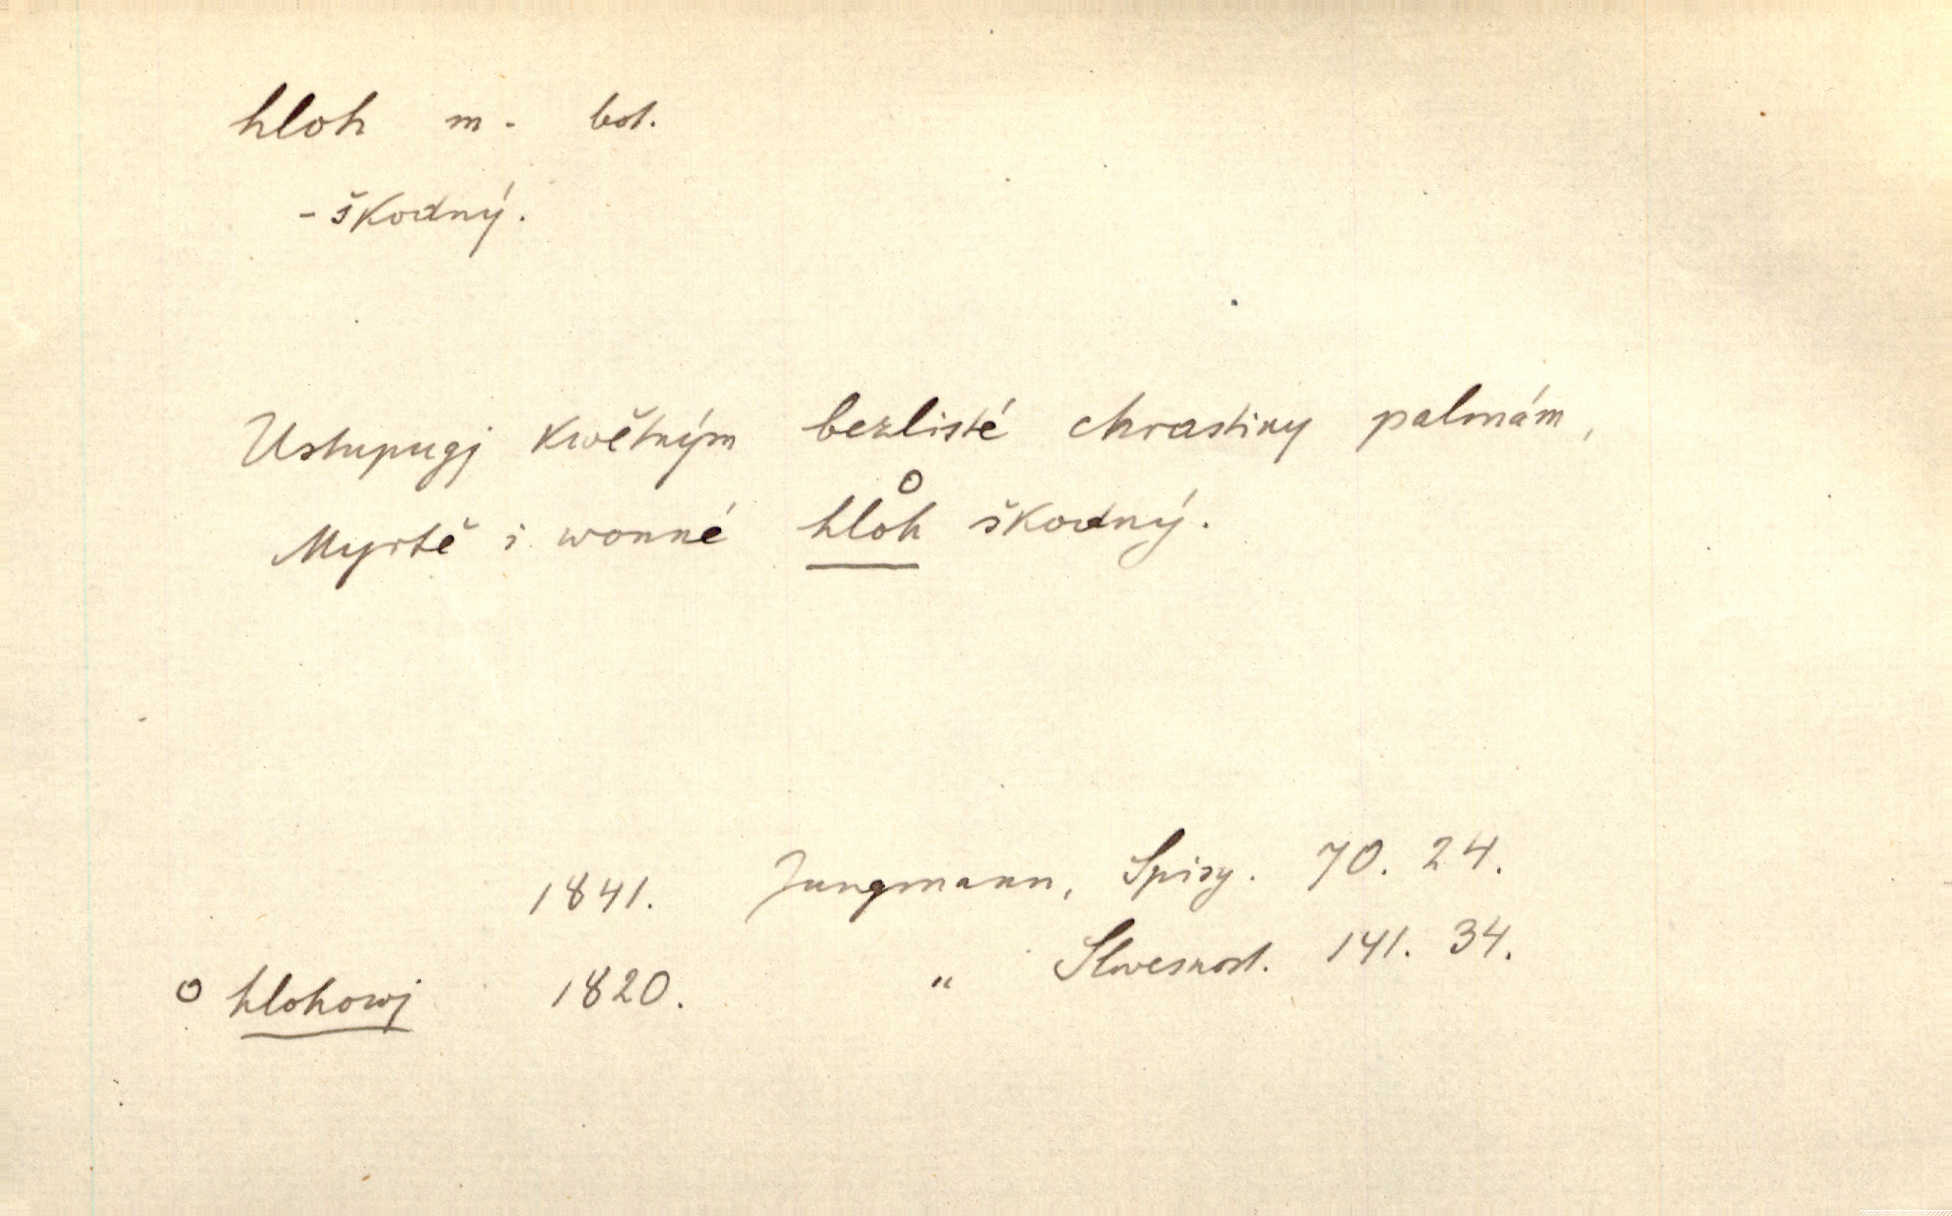 hloh m. bot.
- škodný.
Ustupugj kwětným bezlisté chrastiny palmám,
Myrtě i wonné hloh° škodný.
1841. Jungmann, Spisy. 70. 24.
° hlohowj 1820. " Slwesnost. 141. 34.